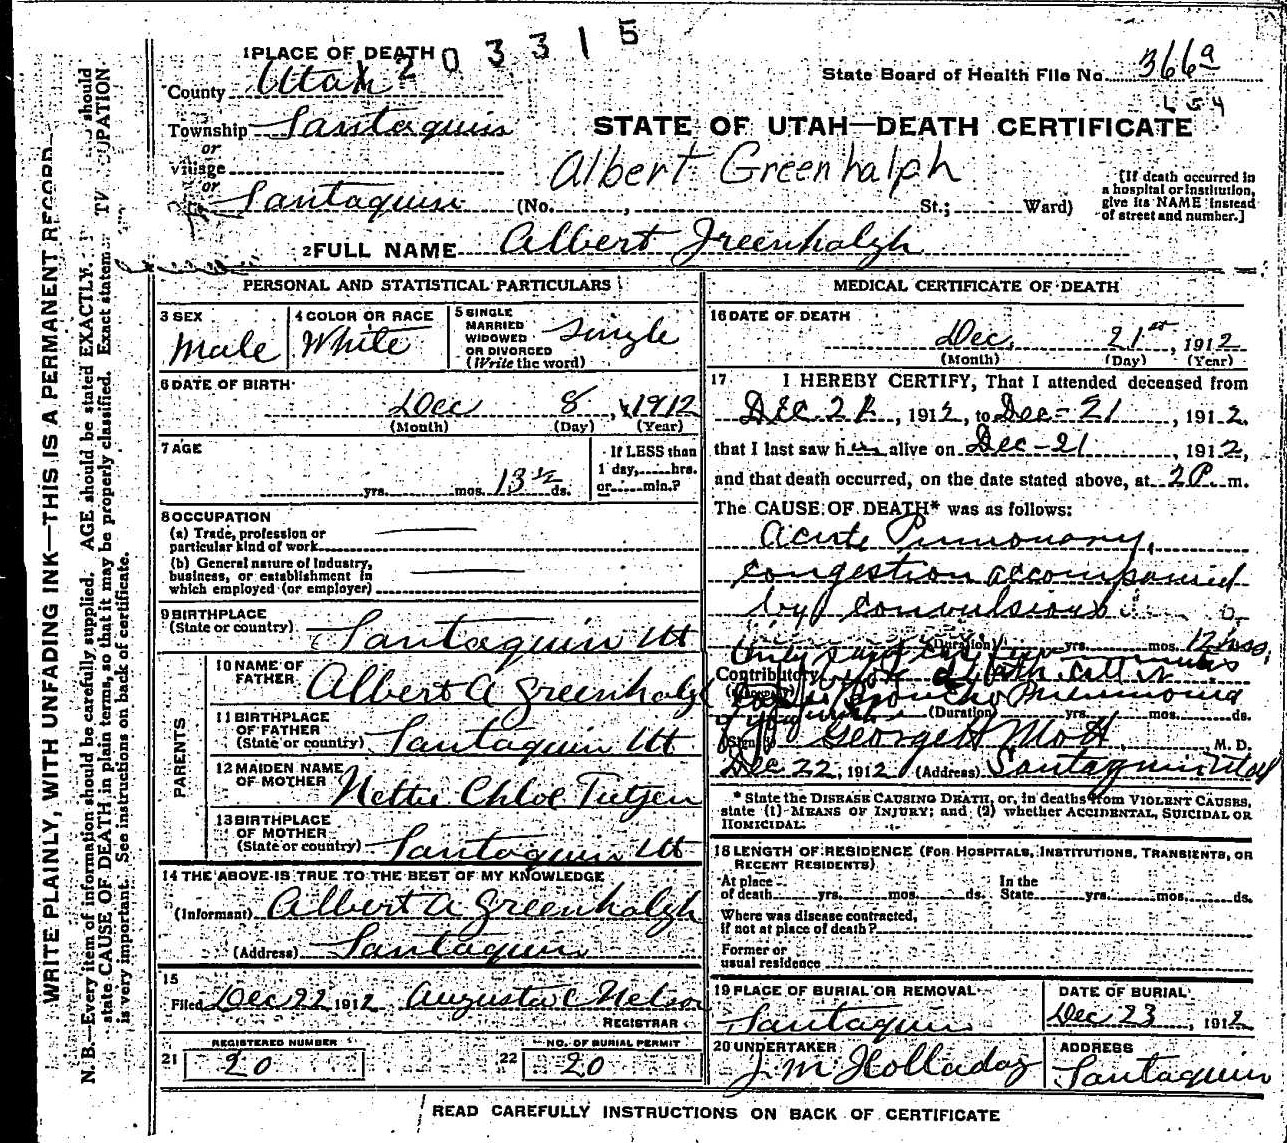 1 PLACE OF DEATH 203315
County Utah
State Board of Health File No. 366a
Township Santaquin
L 54
or
STATE OF UTAH—DEATH CERTIFICATE
Village
Albert Greenhalph
or
Santaquin (No. , St.; Ward)
[If death occurred in
a hospital or institution,
give its NAME instead
of street and number.]
2 FULL NAME Albert Greenhalgh
WRITE PLAINLY, WITH UNFADING INK—THIS IS A PERMANENT RECORD
N. B.—Every item of information should be carefully supplied. AGE should be stated EXACTLY. should
state CAUSE OF DEATH in plain terms, so that it may be properly classified. Exact statem CUPATION
is very important. See instructions on back of certificate.
PERSONAL AND STATISTICAL PARTICULARS
3 SEX
Male
4 COLOR OR RACE
White
5 SINGLE
MARRIED
WIDOWED
OR DIVORCED
(Write the word)
Single
6 DATE OF BIRTH
Dec 8, 1912
(Month) (Day) (Year)
7 AGE
yrs. mos. 13½ ds.
If LESS than
1 day, hrs.
or min.?
8 OCCUPATION
(a) Trade, profession or
particular kind of work
(b) General nature of Industry,
business, or establishment in
which employed (or employer)
9 BIRTHPLACE
(State or country) Santaquin Ut
PARENTS
10 NAME OF
FATHER Albert A Greenhalgh
11 BIRTHPLACE
OF FATHER
(State or country) Santaquin Ut
12 MAIDEN NAME
OF MOTHER Nettie Chloe Tietjen
13 BIRTHPLACE
OF MOTHER
(State or country) Santaquin Ut
14 THE ABOVE IS TRUE TO THE BEST OF MY KNOWLEDGE
(Informant) Albert A Greenhalgh
(Address) Santaquin
15
Filed Dec 22 1912 Augusta C Nelson
REGISTRAR
21 REGISTERED NUMBER
20
22 NO. OF BURIAL PERMIT
20
MEDICAL CERTIFICATE OF DEATH
16 DATE OF DEATH
Dec. 21st, 1912
(Month) (Day) (Year)
17 I HEREBY CERTIFY, That I attended deceased from
Dec 21, 1912, to Dec-21, 1912.
that I last saw h alive on Dec-21, 1912,
and that death occurred, on the date stated above, at 2P m.
The CAUSE OF DEATH* was as follows:
Acute Pulmonary
congestion accompanied
by convulsions
(Duration) yrs. mos. 12 hrs.
Only
Contributory
Broncho Pneumonia
(Duration) yrs. mos. ds.
(Signed) George H Mott, M. D.
Dec 22, 1912 (Address) Santaquin Utah
* State the DISEASE CAUSING DEATH, or, in deaths from VIOLENT CAUSES,
state (1) MEANS OF INJURY; and (2) whether ACCIDENTAL, SUICIDAL OR
HOMICIDAL.
18 LENGTH OF RESIDENCE (FOR HOSPITALS, INSTITUTIONS, TRANSIENTS, OR
RECENT RESIDENTS)
At place
of death yrs. mos. ds.
In the
State yrs. mos. ds.
Where was disease contracted,
if not at place of death?
Former or
usual residence
19 PLACE OF BURIAL OR REMOVAL
Santaquin
DATE OF BURIAL
Dec 23, 1912
20 UNDERTAKER
J. M Holladay
ADDRESS
Santaquin
READ CAREFULLY INSTRUCTIONS ON BACK OF CERTIFICATE